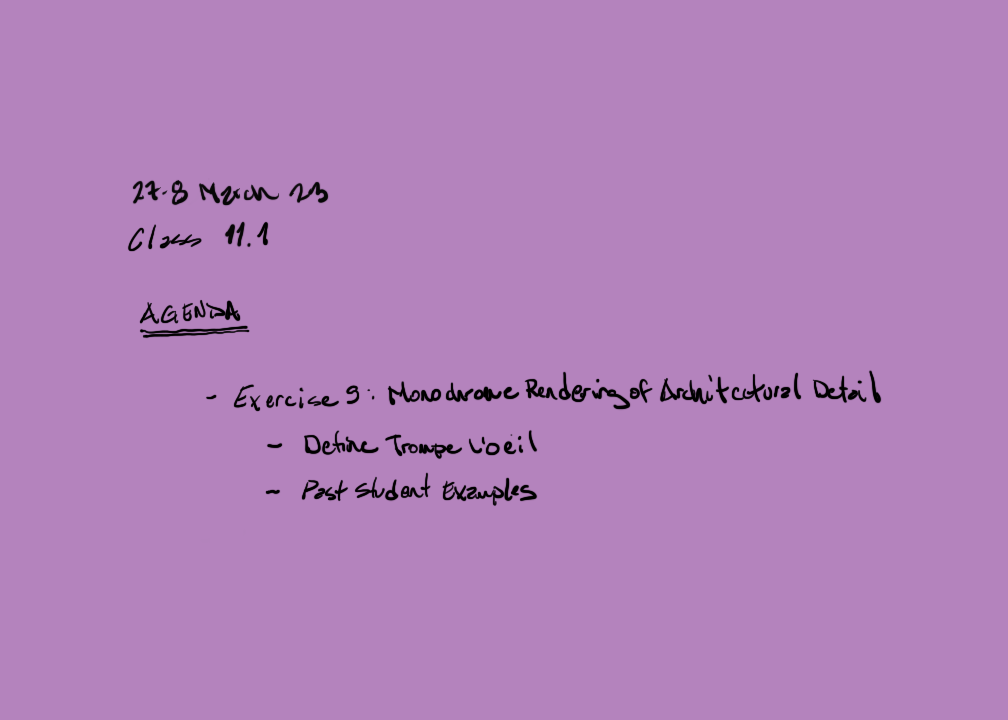 27-8 March 23
Class 11.1
AGENDA
- Exercise 9: Monochrome Rendering of Architectural Detail
- Define Trompe L'oeil
- Past Student Examples